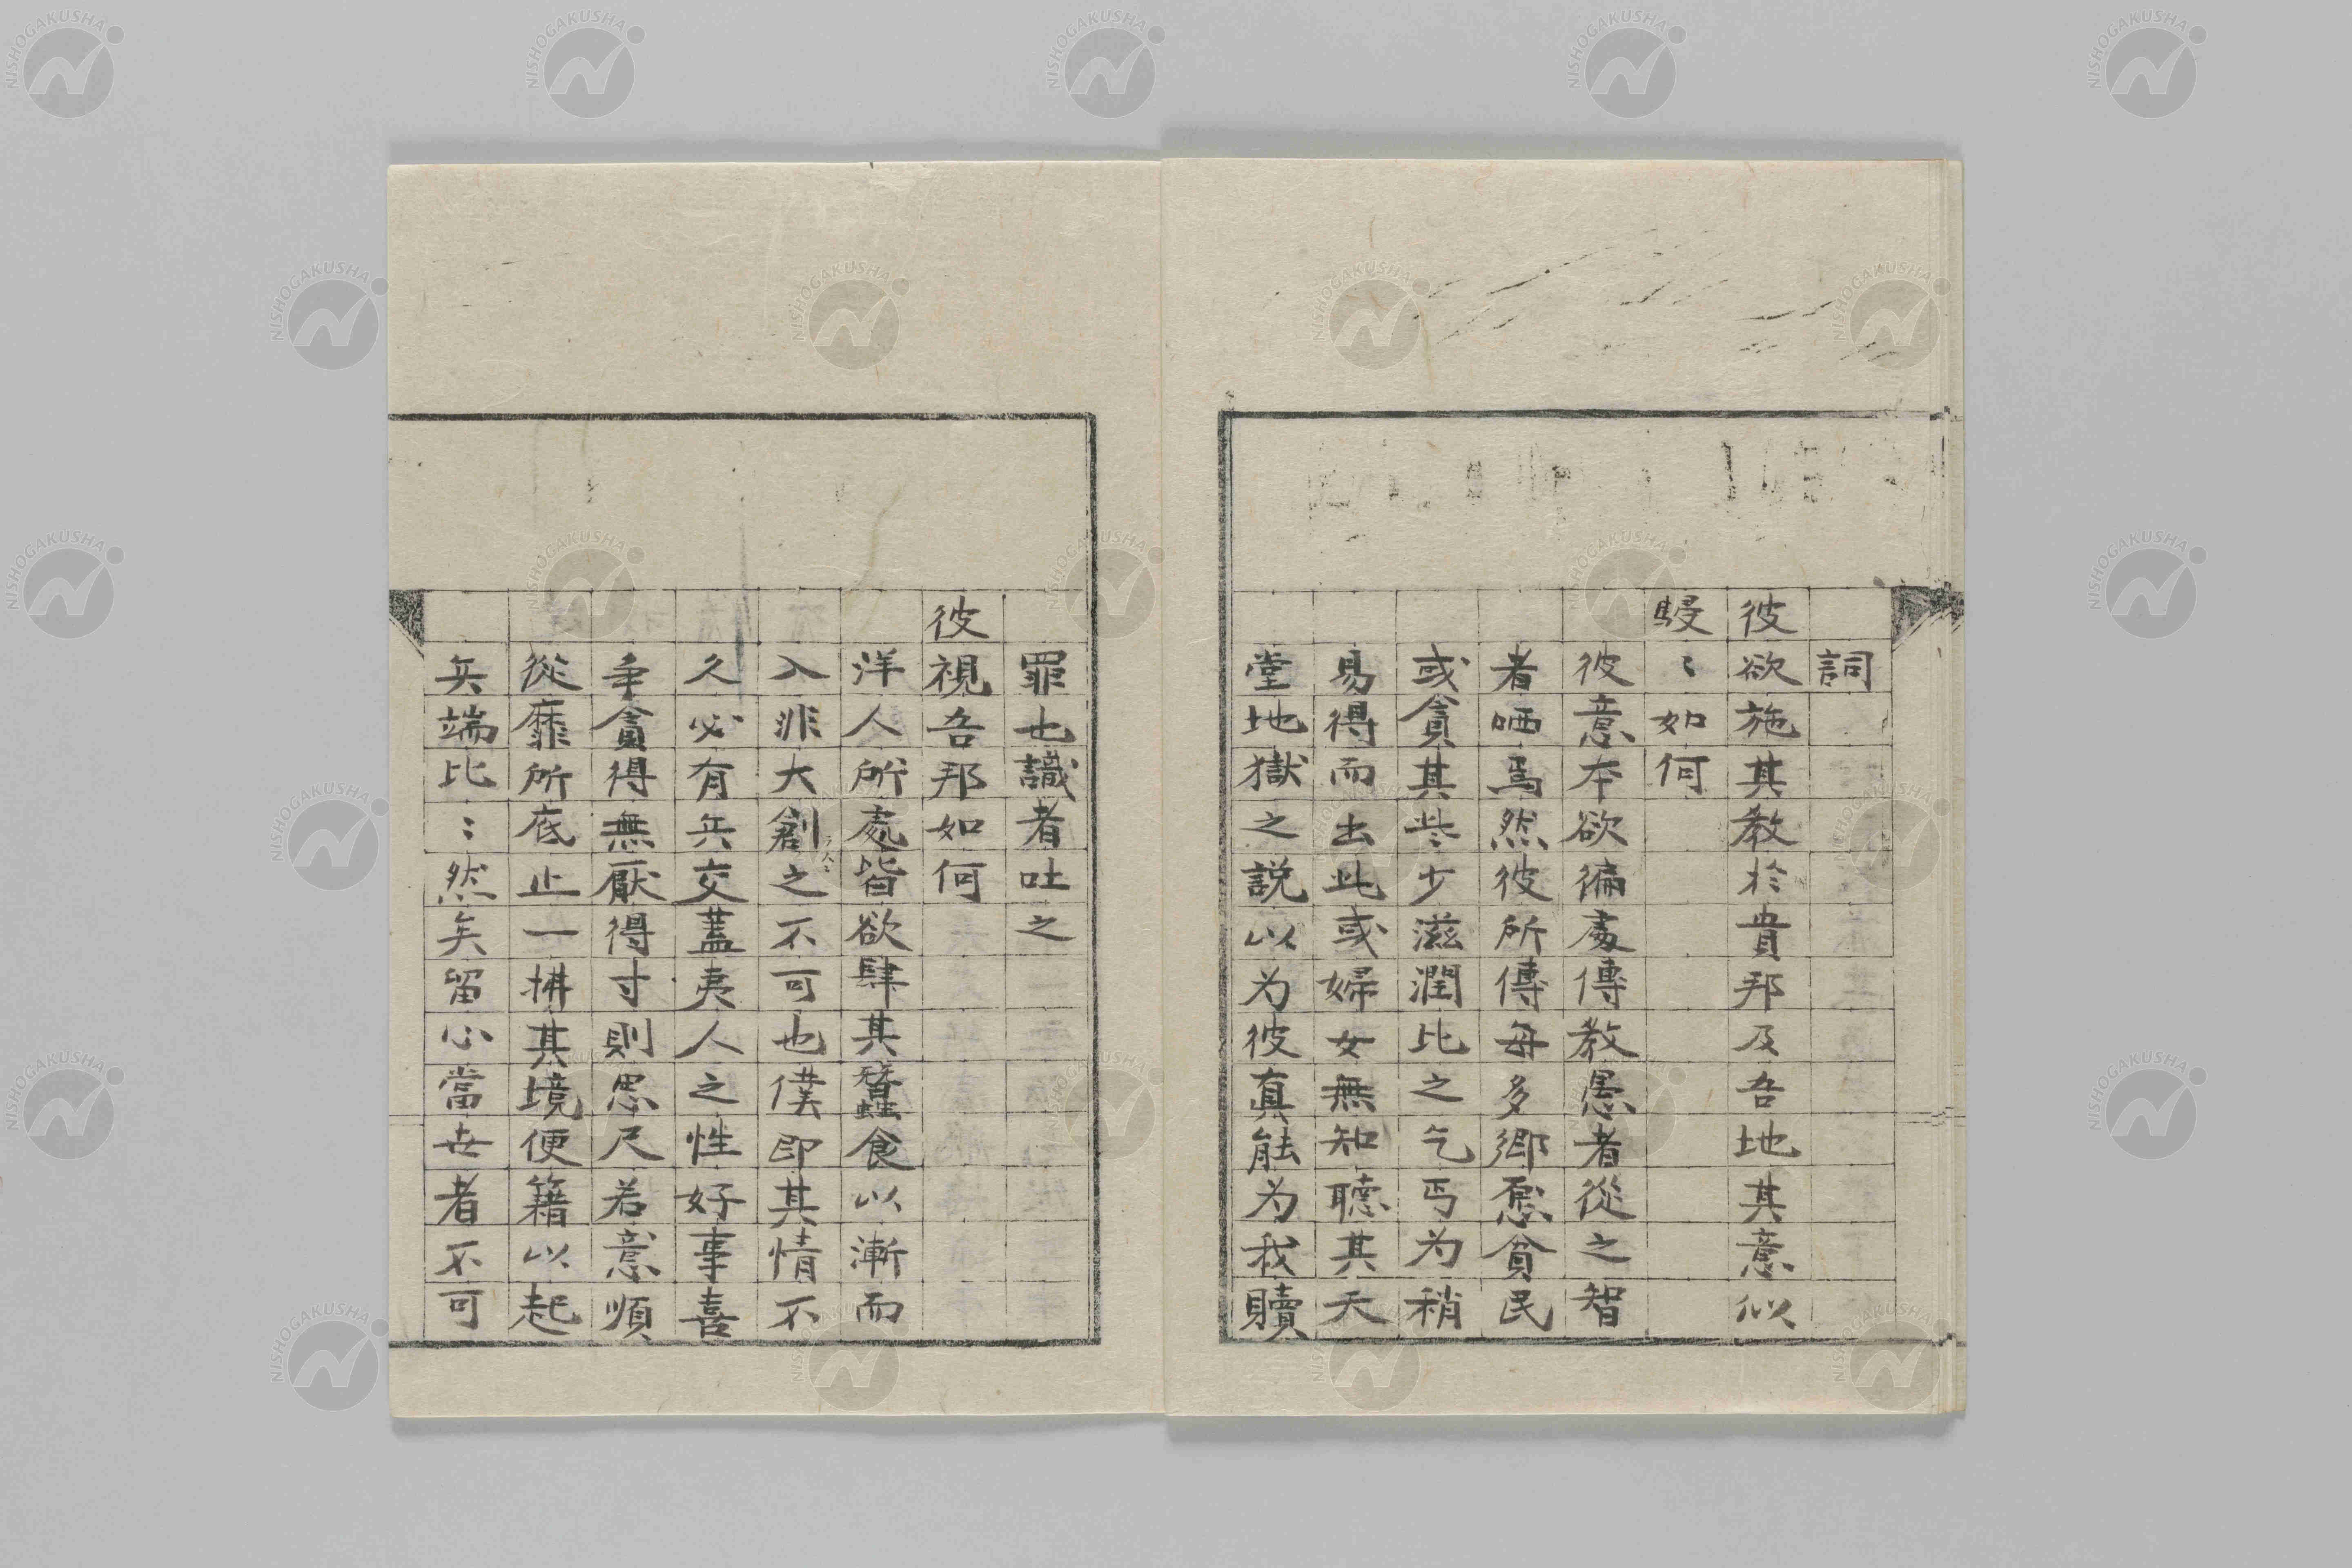 詞
彼欲施其教於貴邦及吾地其意似
駸〻如何
彼意本欲徧處傳教愚者從之智
者哂焉然彼所傳毎多鄉愿貧民
或貪其些少滋潤比之乞丐为稍
易得而出此或婦女無知聽其天
堂地獄之説以为彼真能为我贖
罪也識者吐之
彼視吾邦如何
洋人所處皆欲肆其蠶食以漸而
入非大創之不可也僕即其情不
久必有兵交蓋夷人之性好事喜
爭貪得無厭得寸則思尺若意順
從靡所底止一拂其境便籍以起
兵端比〻然矣留心當世者不可
NISHOGAKUSHA